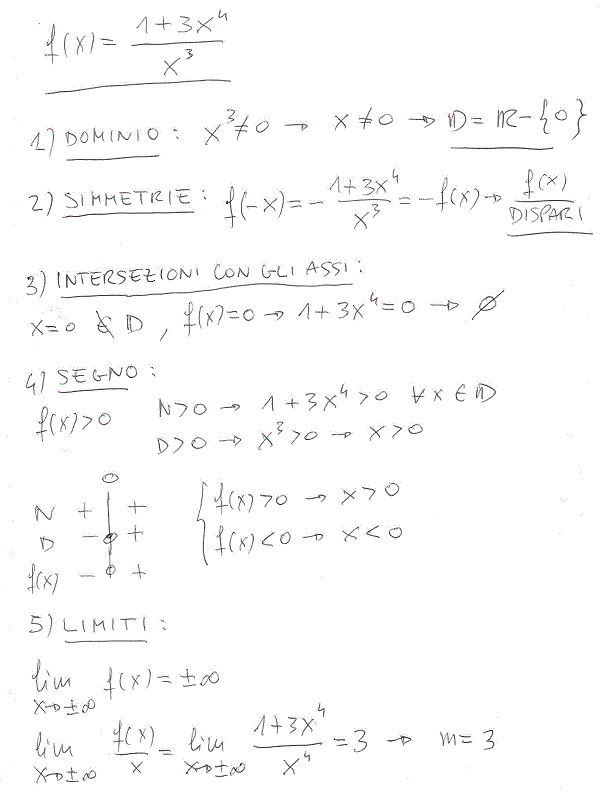 f(x) = (1+3x⁴)/x³
1) DOMINIO : x³≠0 → x≠0 → D = R-{0}
2) SIMMETRIE : f(-x) = - (1+3x⁴)/x³ = -f(x) → f(x) DISPARI
3) INTERSEZIONI CON GLI ASSI :
x=0 ∉ D , f(x)=0 → 1+3x⁴=0 → ∅
4) SEGNO :
f(x)>0 N>0 → 1+3x⁴>0 ∀x∈D
D>0 → x³>0 → x>0
0
N + + { f(x)>0 → x>0
D - + f(x)<0 → x<0
f(x) - +
5) LIMITI :
lim x→±∞ f(x) = ±∞
lim x→±∞ f(x)/x = lim x→±∞ (1+3x⁴)/x⁴ = 3 → m=3